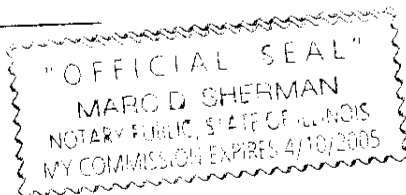 "OFFICIAL SEAL"
MARC D. SHERMAN
NOTARY PUBLIC, STATE OF ILLINOIS
MY COMMISSION EXPIRES 4/10/2005